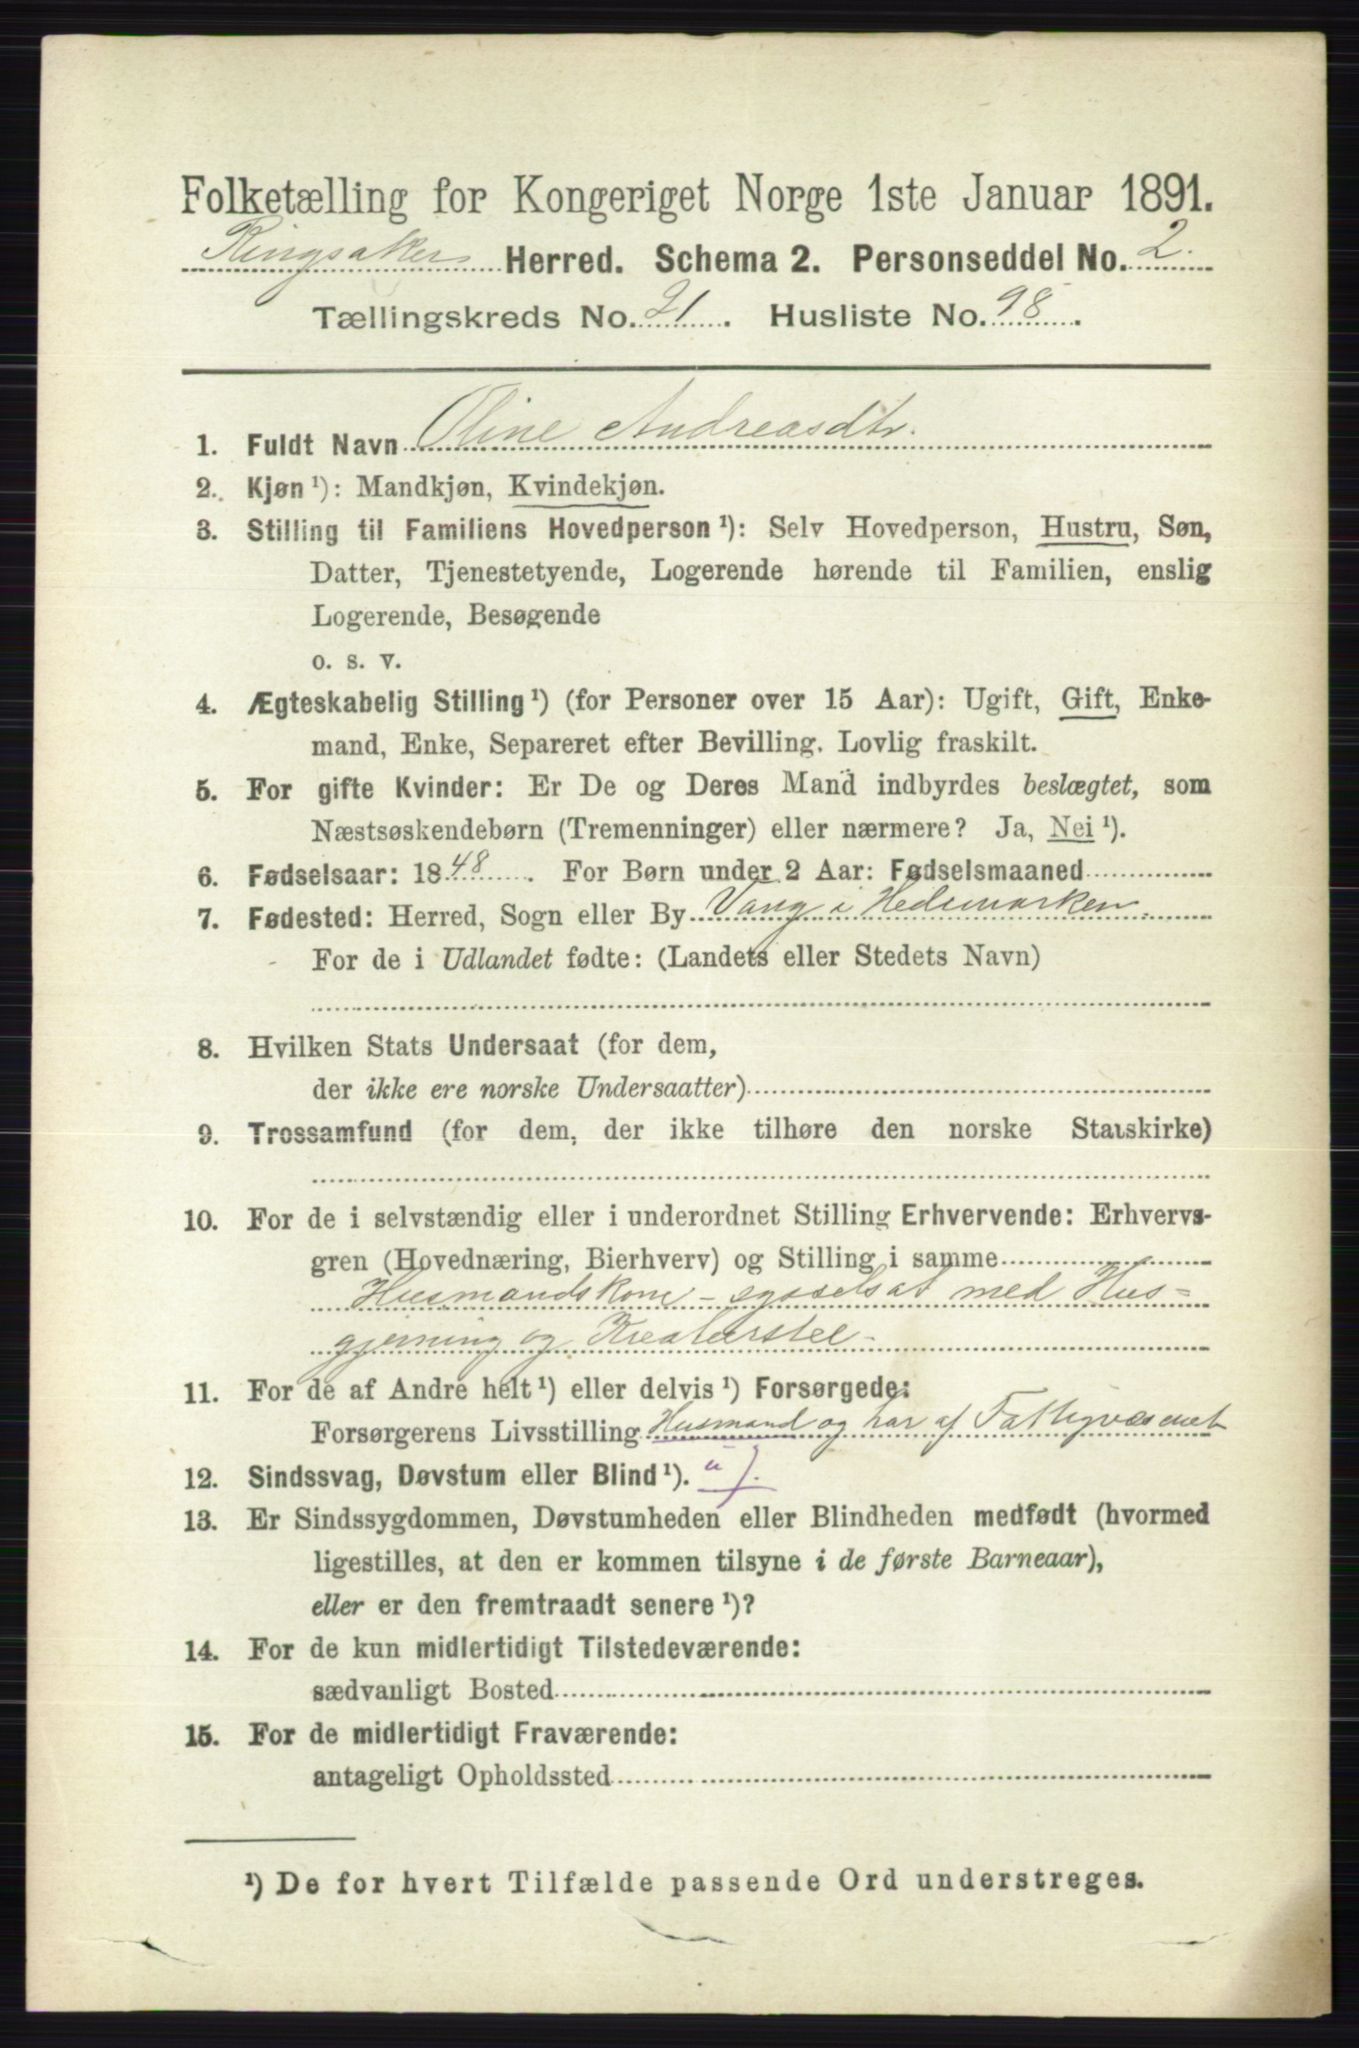 Folketælling for Kongeriget Norge 1ste Januar 1891.
Ringsaker Herred. Schema 2. Personseddel No. 2.
Tællingskreds No. 21. Husliste No. 98.
1. Fuldt Navn Oline Andreasdtr.
2. Kjøn ¹): Mandkjøn, Kvindekjøn.
3. Stilling til Familiens Hovedperson ¹): Selv Hovedperson, Hustru, Søn,
Datter, Tjenestetyende, Logerende hørende til Familien, enslig
Logerende, Besøgende
o. s. v.
4. Ægteskabelig Stilling ¹) (for Personer over 15 Aar): Ugift, Gift, Enke-
mand, Enke, Separeret efter Bevilling. Lovlig fraskilt.
5. For gifte Kvinder: Er De og Deres Mand indbyrdes beslægtet, som
Næstsøskendebørn (Tremenninger) eller nærmere? Ja, Nei ¹).
6. Fødselsaar: 1848. For Børn under 2 Aar: Fødselsmaaned
7. Fødested: Herred, Sogn eller By Vang i Hedemarken.
For de i Udlandet fødte: (Landets eller Stedets Navn)
8. Hvilken Stats Undersaat (for dem,
der ikke ere norske Undersaatter)
9. Trossamfund (for dem, der ikke tilhøre den norske Statskirke)
10. For de i selvstændig eller i underordnet Stilling Erhvervende: Erhvervs-
gren (Hovednæring, Bierhverv) og Stilling i samme
Husmandskone - sysselsat med Hus-
gjerning og Kreaturstel -
11. For de af Andre helt ¹) eller delvis ¹) Forsørgede:
Forsørgerens Livsstilling Husmand og har af Fattigvæsenet
12. Sindssvag, Døvstum eller Blind ¹).
13. Er Sindssygdommen, Døvstumheden eller Blindheden medfødt (hvormed
ligestilles, at den er kommen tilsyne i de første Barneaar),
eller er den fremtraadt senere ¹)?
14. For de kun midlertidigt Tilstedeværende:
sædvanligt Bosted
15. For de midlertidigt Fraværende:
antageligt Opholdssted
¹) De for hvert Tilfælde passende Ord understreges.